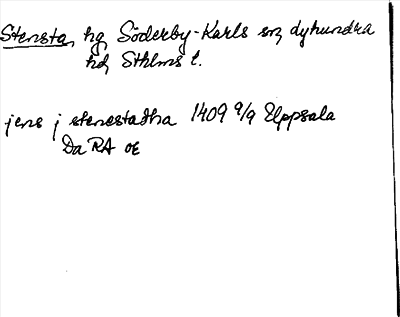 Stensta, hg, Söderby-Karls sn, Lyhundra
hd, Sthlms l.
jens j stenestadha 1409 9/9 Uppsala
Da RA oe